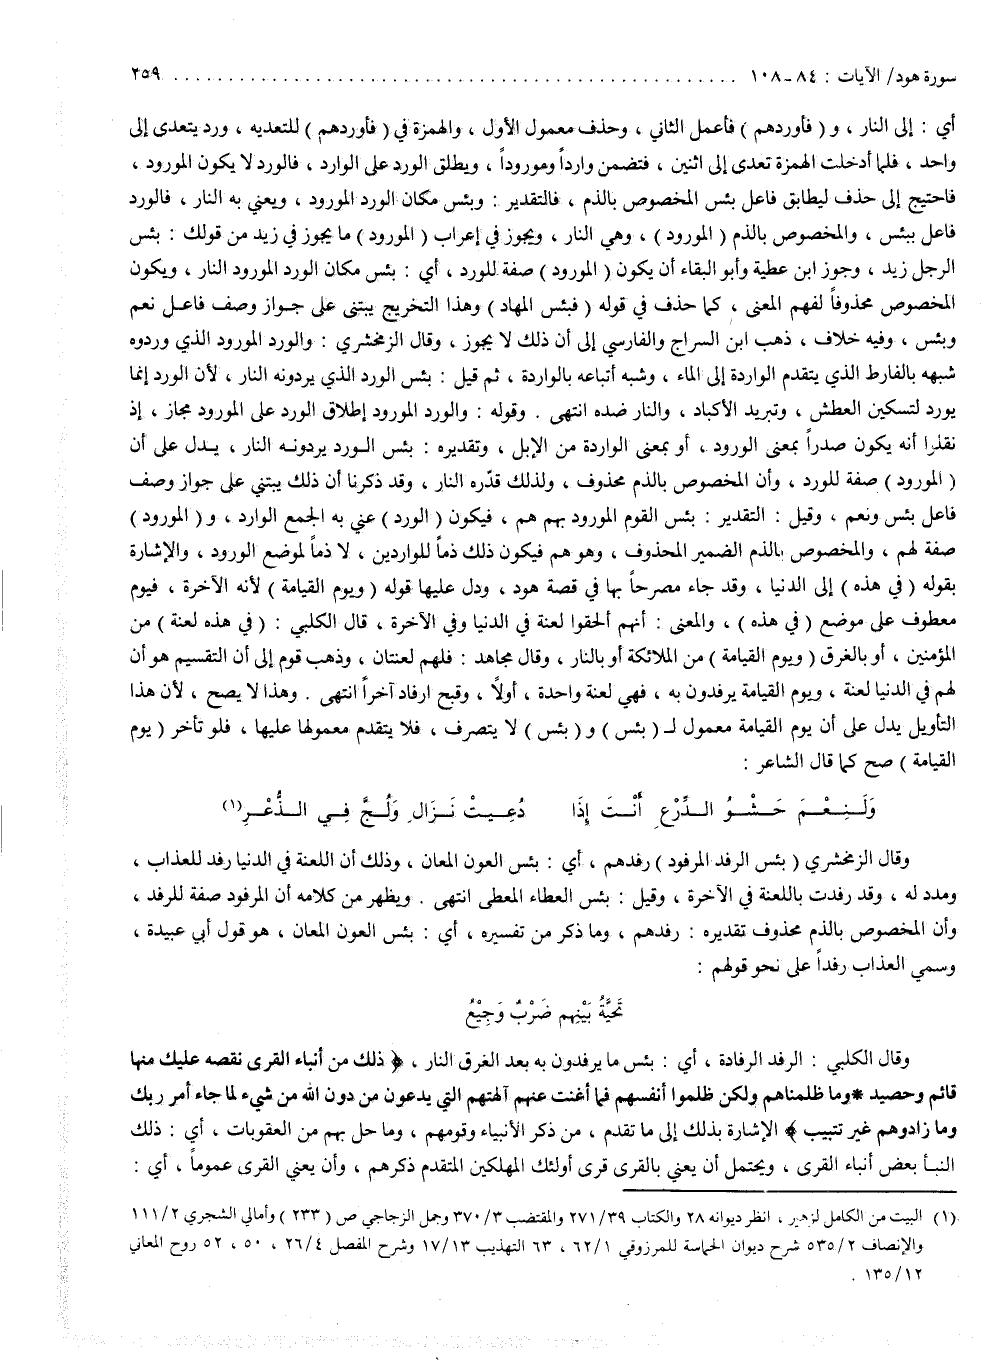 سورة هود/ الآيات : ٨٤-١٠٨ ................................................ ٢٥٩
أي : إلى النار ، و ( فأوردهم ) فأعمل الثاني ، وحذف معمول الأول ، والهمزة في ( فأوردهم ) للتعديه ، ورد يتعدى إلى
واحد ، فلما أدخلت الهمزة تعدى إلى اثنين ، فتضمن وارداً وموروداً ، ويطلق الورد على الوارد ، فالورد لا يكون المورود ،
فاحتيج إلى حذف ليطابق فاعل بئس المخصوص بالذم ، فالتقدير : وبئس مكان الورد المورود ، ويعني به النار ، فالورد
فاعل ببئس ، والمخصوص بالذم ( المورود ) ، وهي النار ، ويجوز في إعراب ( المورود ) ما يجوز في زيد من قولك : بئس
الرجل زيد ، وجوز ابن عطية وأبو البقاء أن يكون ( المورود ) صفة للورد ، أي : بئس مكان الورد المورود النار ، ويكون
المخصوص محذوفاً لفهم المعنى ، كما حذف في قوله ( فبئس المهاد ) وهذا التخريج يبتنى على جواز وصف فاعل نعم
وبئس ، وفيه خلاف ، ذهب ابن السراج والفارسي إلى أن ذلك لا يجوز ، وقال الزمخشري : والورد المورود الذي وردوه
شبهه بالفارط الذي يتقدم الواردة إلى الماء ، وشبه أتباعه بالواردة ، ثم قيل : بئس الورد الذي يردونه النار ، لأن الورد إنما
يورد لتسكين العطش ، وتبريد الأكباد ، والنار ضده انتهى . وقوله : والورد المورود إطلاق الورد على المورود مجاز ، إذ
نقلوا أنه يكون صدراً بمعنى الورود ، أو بمعنى الواردة من الإبل ، وتقديره : بئس الورد يردونه النار ، يدل على أن
( المورود ) صفة للورد ، وأن المخصوص بالذم محذوف ، ولذلك قدّره النار ، وقد ذكرنا أن ذلك يبتني على جواز وصف
فاعل بئس ونعم ، وقيل : التقدير : بئس القوم المورود بهم هم ، فيكون ( الورد ) عني به الجمع الوارد ، و ( المورود )
صفة لهم ، والمخصوص بالذم الضمير المحذوف ، وهو هم فيكون ذلك ذماً للواردين ، لا ذماً لموضع الورود ، والإشارة
بقوله ( في هذه ) إلى الدنيا ، وقد جاء مصرحاً بها في قصة هود ، ودل عليها قوله ( ويوم القيامة ) لأنه الآخرة ، فيوم
معطوف على موضع ( في هذه ) ، والمعنى : أنهم ألحقوا لعنة في الدنيا وفي الآخرة ، قال الكلبي : ( في هذه لعنة ) من
المؤمنين ، أو بالغرق ( ويوم القيامة ) من الملائكة أو بالنار ، وقال مجاهد : فلهم لعنتان ، وذهب قوم إلى أن التقسيم هو أن
لهم في الدنيا لعنة ، ويوم القيامة يرفدون به ، فهي لعنة واحدة ، أولاً ، وقبح ارفاد آخراً انتهى . وهذا لا يصح ، لأن هذا
التأويل يدل على أن يوم القيامة معمول لـ ( بئس ) و ( بئس ) لا يتصرف ، فلا يتقدم معمولها عليها ، فلو تأخر ( يوم
القيامة ) صح كما قال الشاعر :
وَلَنِعْمَ حَشْوُ الدِّرْعِ أَنْتَ إِذَا دُعِيتْ نَزَالِ وَلُجَّ فِي الذُّعْرِ(١)
وقال الزمخشري ( بئس الرفد المرفود ) رفدهم ، أي : بئس العون المعان ، وذلك أن اللعنة في الدنيا رفد للعذاب ،
ومدد له ، وقد رفدت باللعنة في الآخرة ، وقيل : بئس العطاء المعطى انتهى . ويظهر من كلامه أن المرفود صفة للرفد ،
وأن المخصوص بالذم محذوف تقديره : رفدهم ، وما ذكر من تفسيره ، أي : بئس العون المعان ، هو قول أبي عبيدة ،
وسمي العذاب رفداً على نحو قولهم :
تَحَيَّةُ بَيْنِهِم ضَرْبٌ وَجِيْعُ
وقال الكلبي : الرفد الرفادة ، أي : بئس ما يرفدون به بعد الغرق النار ، ﴿ ذلك من أنباء القرى نقصه عليك منها
قائم وحصيد *وما ظلمناهم ولكن ظلموا أنفسهم فما أغنت عنهم آلهتهم التي يدعون من دون الله من شيء لما جاء أمر ربك
وما زادوهم غير تتبيب ﴾ الإشارة بذلك إلى ما تقدم ، من ذكر الأنبياء وقومهم ، وما حل بهم من العقوبات ، أي : ذلك
النبأ بعض أنباء القرى ، ويحتمل أن يعني بالقرى قرى أولئك المهلكين المتقدم ذكرهم ، وأن يعني القرى عموماً ، أي :
(١) البيت من الكامل لزهير ، انظر ديوانه ٢٨ والكتاب ٢٧١/٣٩ والمقتضب ٣٧٠/٣ وجمل الزجاجي ص ( ٢٣٣ ) وأمالي الشجري ١١١/٢
والإنصاف ٥٣٥/٢ شرح ديوان الحماسة للمرزوقي ٦٢/١ ، ٦٣ التهذيب ١٧/١٣ وشرح المفصل ٢٦/٤ ، ٥٠ ، ٥٢ روح المعاني
١٣٥/١٢ .